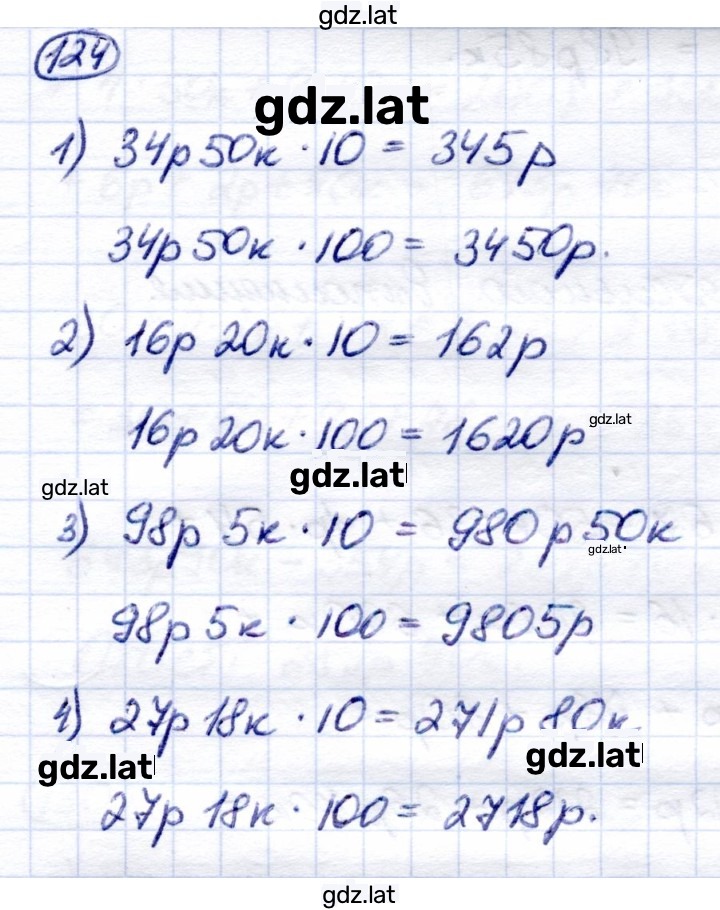 gdz.lat
124
gdz.lat
1) 34р 50к · 10 = 345р
34р 50к · 100 = 3450р.
2) 16р 20к · 10 = 162р
gdz.lat
16р 20к · 100 = 1620р
gdz.lat
gdz.lat
3) 98р 5к · 10 = 980р 50к
gdz.lat
98р 5к · 100 = 9805р
4) 27р 18к · 10 = 271р 80к.
gdz.lat
gdz.lat
27р 18к · 100 = 2718р.
gdz.lat